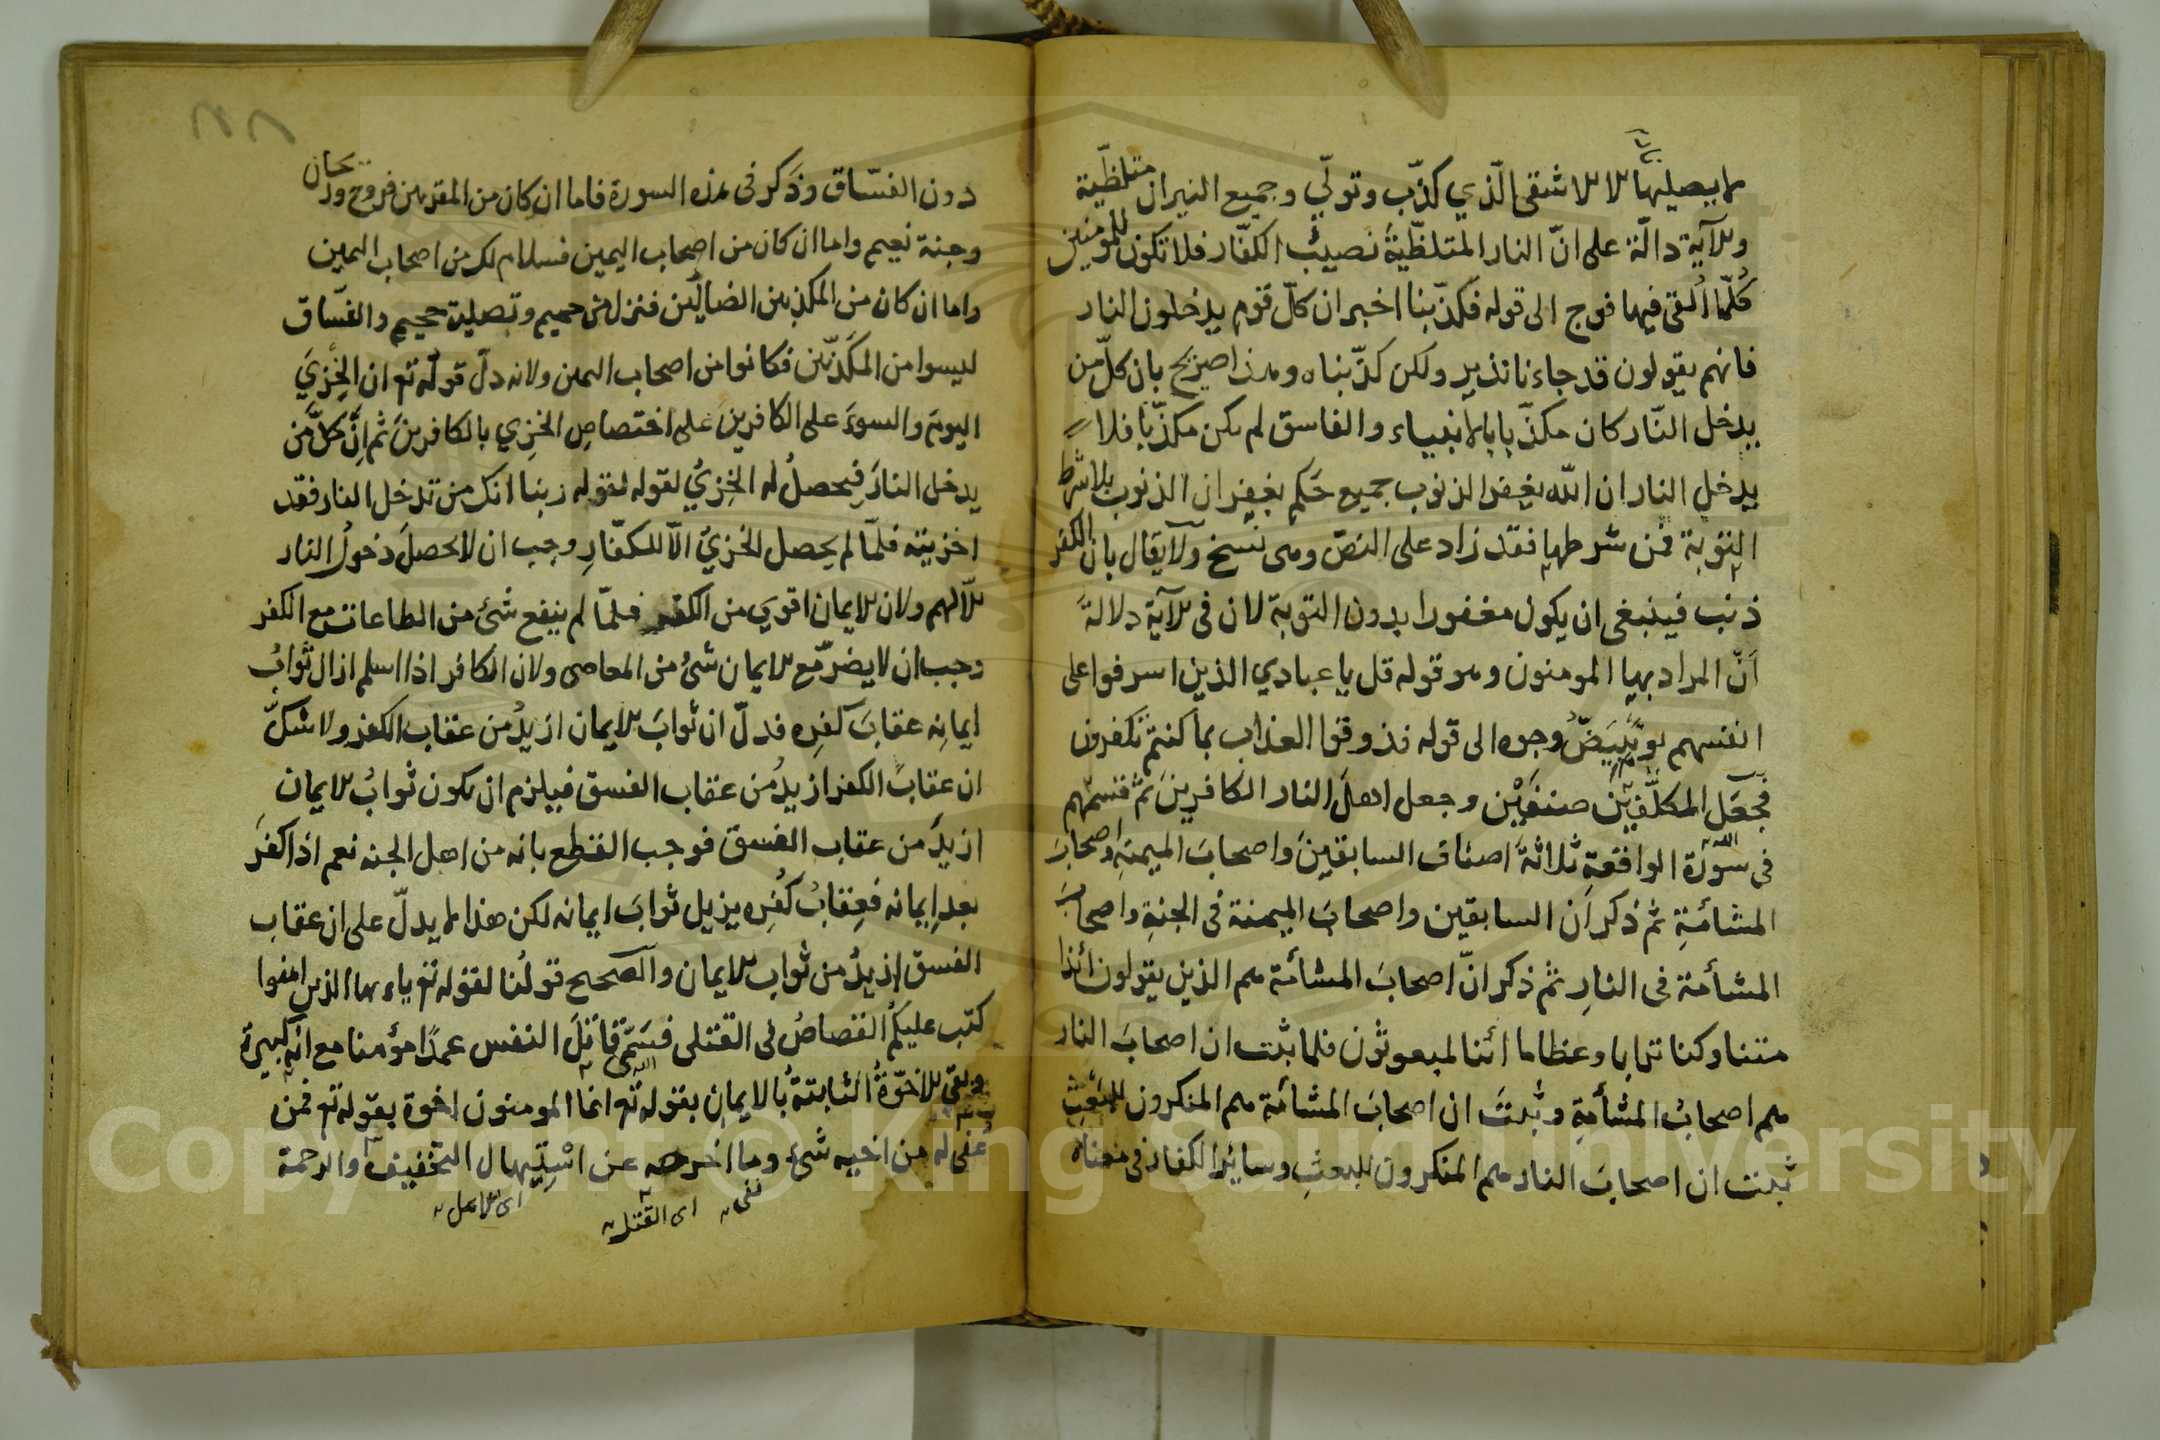 لا يصليها الا الاشقى الّذي كذّب وتولّي وجميع النيران متلظّية
والآية دالّة على انّ النار المتلظّيةَ نصيبُ الكفّار فلا تكون للمؤمنين
كُلّما أُلقى فيها فوج الى قوله فكذّبنا اخبر ان كلّ قوم يدخلون النار
فانهم يقولون قد جاءنا نذير ولكن كذّبناه وهذا صريح بان كلّ من
يدخل النّار كان مكذّبا بالانبياء والفاسق لم يكن مكذّبًا فلا
يدخل النار ان اللّه يغفر الذنوب جميع حَكم بغفران الذنوب بلا شرط
التوبة فمن شرطها فقد زاد على النصّ وهى نسخ ولا يقال بان الكفر
ذنب فينبغى ان يكون مغفورا بدون التوبة لان فى الآية دلالةً
اَنّ المراد بها المومنون وهو قوله قل يا عبادي الذين اسرفوا على
انفسهم يوم تَبيَضُّ وجوه الى قوله فذوقوا العذاب بما كنتم تكفرون
فجعَل المكلَّفين صنفَيْن وجعل اهلَ النار الكافرينَ ثمّ قسمّهم
اللّه فى سورة الواقعةِ ثلاثةَ اصناف السابقينَ واصحابَ الميمنه واصحابَ
المشأمَةِ ثم ذكر اَن السابقين واصحابَ الميمنة فى الجنةِ واصحابَ
المشأمة فى النارِ ثم ذكر انّ اصحابَ المشأمة هم الذين يقولون ائذا
متنا وكنا ترابا وعظاما ائنا لمبعوثون فلما ثبت ان اصحابَ النار
هم اصحابُ المشأمةِ وثبتَ ان اصحابَ المشأمة هم المنكرون للبعثِ
ثبت ان اصحابَ النار هم المنكرون للبعثِ وسايرُ الكفار فى معناه
دون الفسّاق وذَكر فى هذه السورة فاما ان كان من المقربين فروح وريحان
وجنة نعيم واما ان كان من اصحاب اليمين فسلام لك من اصحاب اليمين
واما ان كان من المكذبين الضالّين فنزل من حميم وتصلية جحيم والفسّاق
ليسوا من المكذّبين فكانوا من اصحاب اليمين ولانه دلّ قولُه تع ان الخِزيَ
اليومَ والسوءَ على الكافرينَ على اختصاصِ الخِزيِ بالكافرينَ ثم اِنَّ كلَّ مَن
يدخل النارَ فيحصلُ له الخِزيُ لقوله لقوله ربنا انك من تدخل النار فقد
اخزيته فلمّا لم يحصل الخزيُ الّا للكفّارِ وجب ان لا يحصلَ دخولُ النار
الّا لهم ولان الايمان اقوي من الكفر فلمّا لم ينفع شئ من الطاعات مع الكفر
وجب ان لا يضرّ مع الايمان شئُ من المعاصى ولان الكافر اذا اسلم ازال ثوابُ
ايمانِه عقابَ كفرِه فدلّ ان ثوابَ الايمان ازيدُ من عقاب الكفر ولا شكَّ
ان عقابَ الكفر ازيدُ من عقاب الفسق فيلزم ان يكون ثوابُ الايمان
ازيدَ من عقاب الفسق فوجب القطع بانه من اهل الجنه نعم اذا كفرَ
بعد ايمانه فعِقابُ كُفرِه يزيل ثوابَ ايمانه لكن هذا لا يدلّ على ان عقاب
الفسق ازيدُ من ثواب الايمان والصحيح قولُنا لقوله تع ياءيها الذين امنوا
كتب عليكم القصاصُ فى القتلى فسَمّى قاتلَ النفس عمدًا مؤمنا مع انه كبيرة
وبقى الاخوّةُ الثابتةُ بالايمان بقوله تع انما المومنون اخوة بقوله تع فمن
عفى له من اخيه شئ وما اخرجه عن استيهال التخفيف والرحمة
نفى اى القتل اى الاهل
Copyright © King Saud University